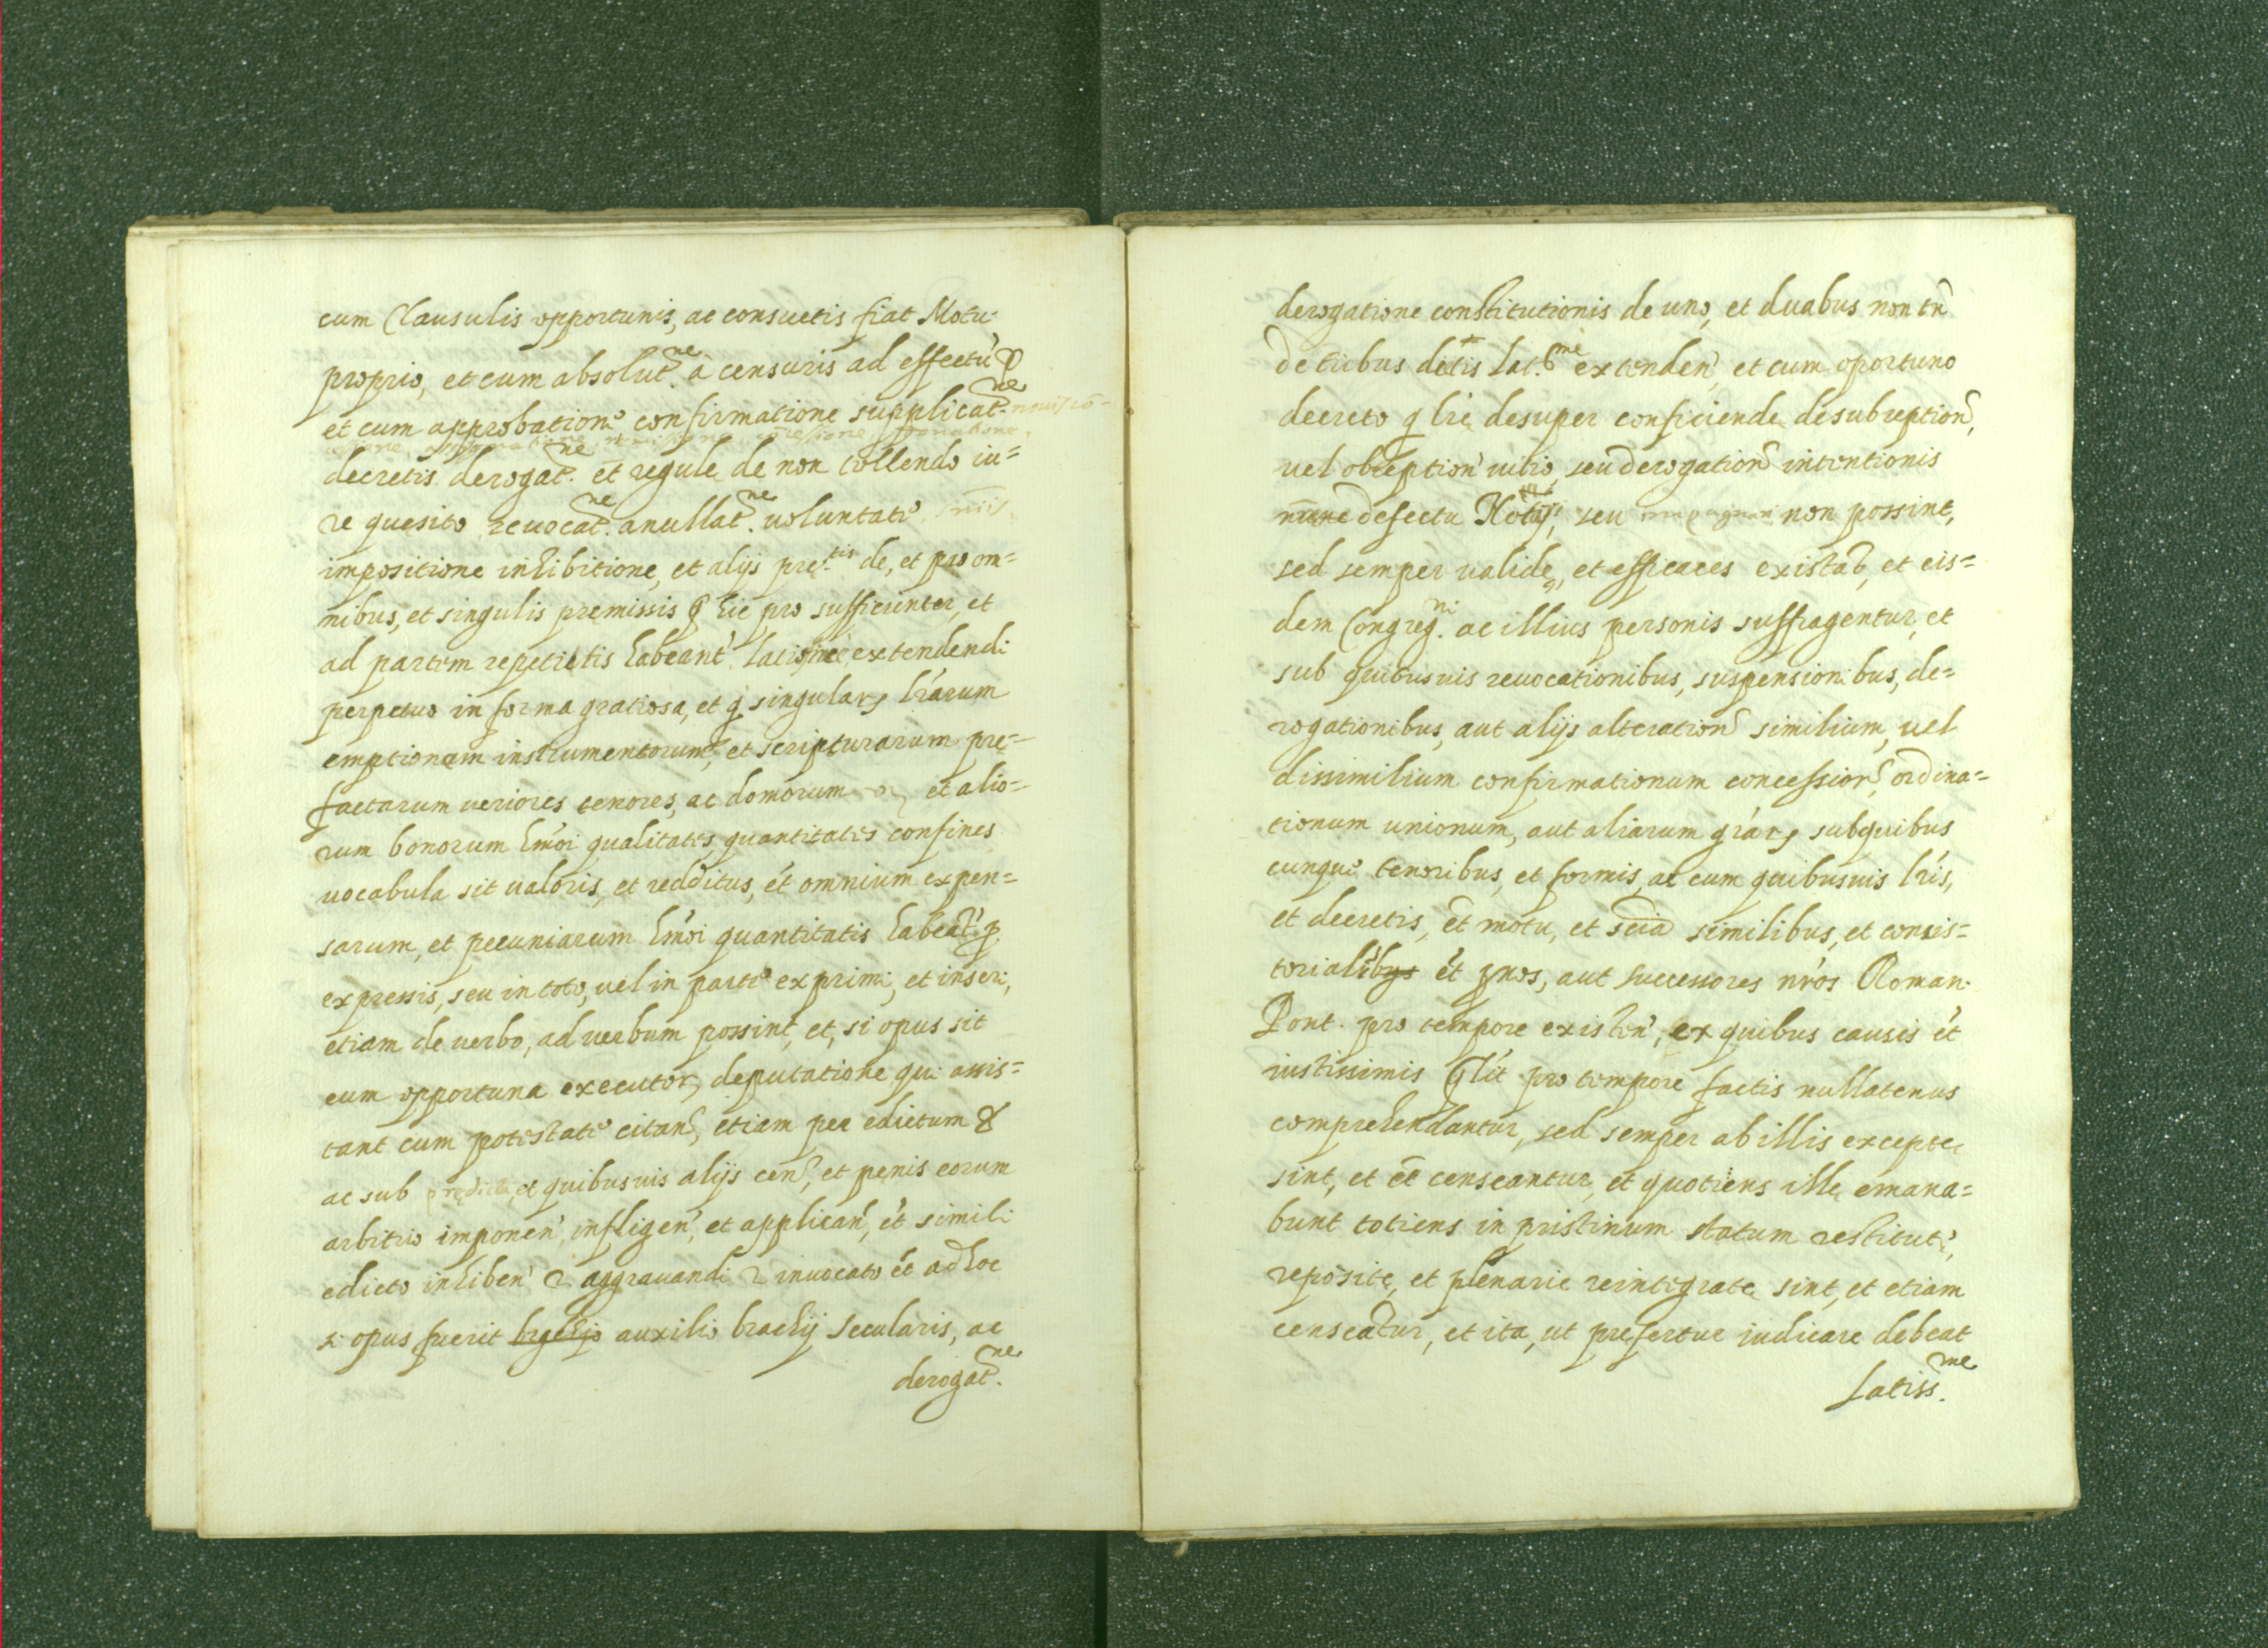 cum Clausulis opportunis, ac consuetis fiat Motu
proprio, et cum absolut.ne à censuris ad effectũ &
et cum approbatione confirmatione supplicat.ne
decretis derogat.ne et̃ regule de non tollendo iu=
re quesito reuocat.ne anullat.ne uoluntate
impositione inhibitione, et alijs pre.tis de, et pro om=
nibus, et singulis premissis q̃ hic pro sufficienter, et
ad partem repetitis habeant́ latissime extendendi
perpetuo in forma gratiosa, et q́ singular lr̃arum
emptionem instrumentorum, et scripturarum pre=
factarum ueriores tenores, ac domorum et alio=
rum bonorum hm̃oi qualitates quantitates confines
uocabula sit ualoris, et redditus, ét omnium expen=
sarum, et pecuniarum hm̃oi quantitatis habeat́ p
expressis, seu in toto, uel in parte exprimi, et inseri,
etiam de uerbo, ad uerbum possint, et, si opus sit
cum opportuna executor deputatione qui assis=
tant cum potestate citan, etiam per edictum &
ac sub predictis, et quibusuis alijs cen, et penis eorum
arbitrio imponen, infligen, et applican, ét simili
edicto inhiben & aggrauandi & inuocato ét ad hoc
si opus fuerit brachijo auxilio brachij secularis, ac
derogat.ne
derogatione constitutionis de uno, et duabus non tñ
de tribus dictis lat.me extenden, et cum oportuno
decreto q lr̃e desuper conficiende de subreption,
uel obreption uitio, seu derogation intentionis
nr̃ure defectu Notij, seu non possint,
sed semper ualide, et efficaces existat, et eis=
dem Congreg.ni ac illius personis suffragentur, et
sub quibusuis reuocationibus, suspensionibus, de=
rogationibus, aut alijs alteration similium, uel
dissimilium confirmationum concession, ordina=
tionum unionum, aut aliarum grár, sub quibus
cunque tenoribus, et formis, ac cum quibusuis lr̃is,
et decretis, ét motu, et scia similibus, et consis=
torialibus ét p nos, aut successores nr̃os Roman.
Pont. pro tempore existen, ex quibus causis ét
iustissimis q̃lit́ pro tempore factis nullatenus
comprehendantur, sed semper ab illis excepte
sint, et et̃ censeantur, et quotiens ille emana=
bunt totiens in pristinum statum restitute,
reposite, et plenarie reintegrate sint, et etiam
censeatur, et ita, ut prefertur iudicare debeat
latiss.me